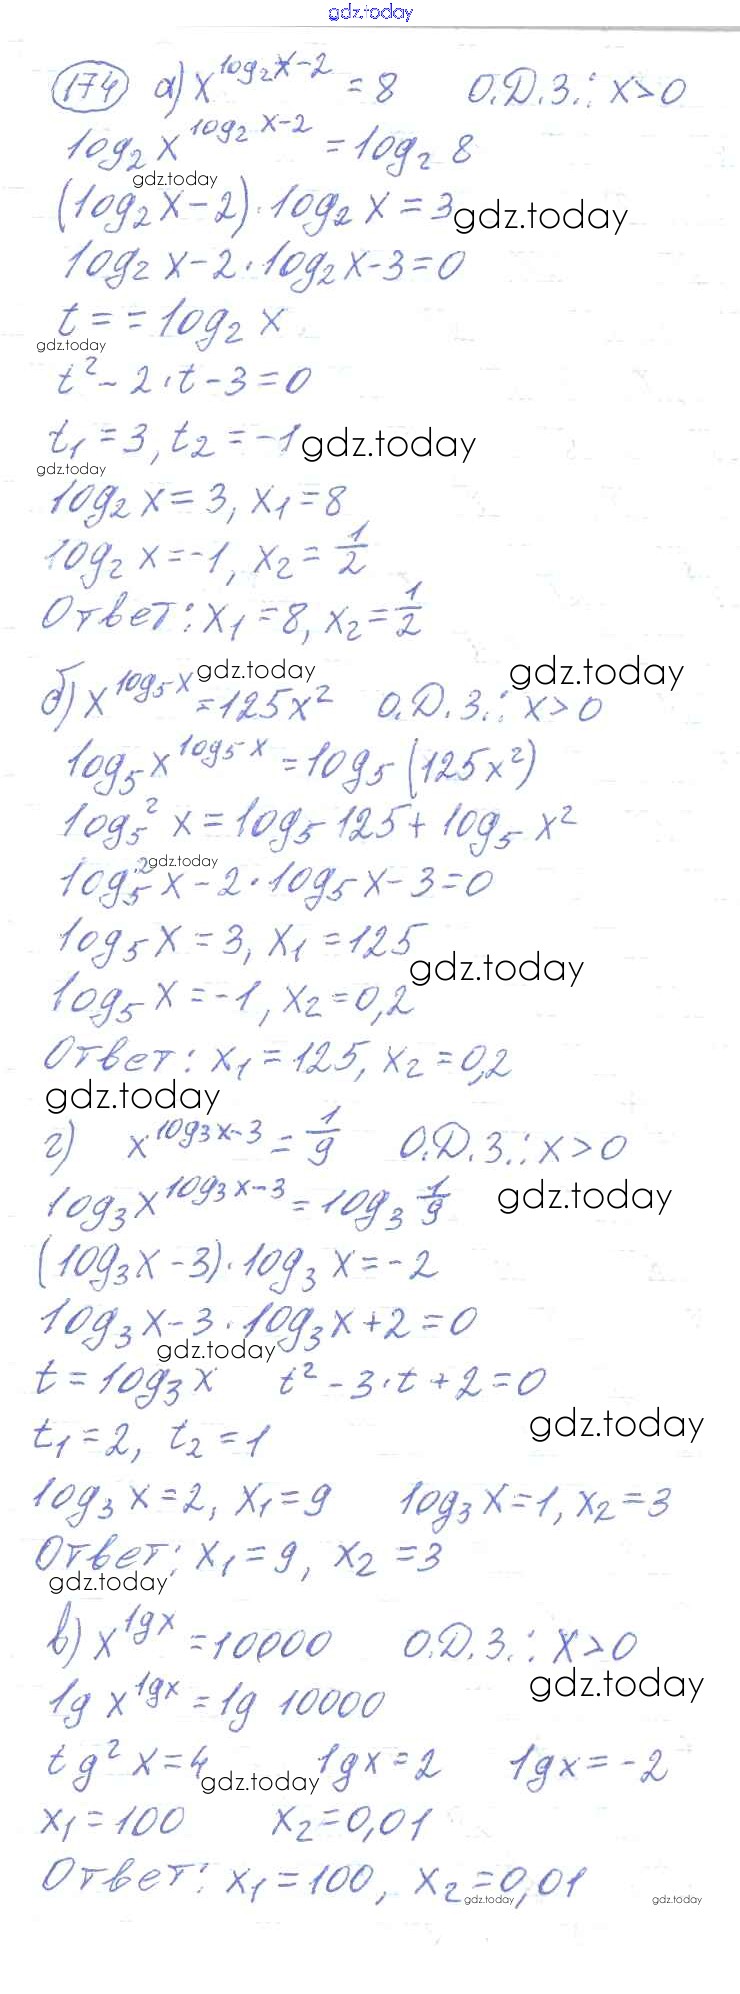 gdz.today
174 а) x^(log₂x-2) = 8 О.Д.З.: x>0
log₂ x^(log₂ x-2) = log₂ 8
gdz.today
(log₂x-2)·log₂x = 3 gdz.today
log₂ x-2·log₂x-3=0
t = = log₂ x
gdz.today
t²-2·t-3=0
t₁=3, t₂=-1 gdz.today
gdz.today
log₂ x=3, x₁=8
log₂ x=-1, x₂=1/2
Ответ: x₁=8, x₂=1/2
gdz.today gdz.today
б) x^(log₅x) = 125x² О.Д.З.: x>0
log₅x^(log₅ x) = log₅ (125x²)
log₅² x = log₅ 125 + log₅ x²
gdz.today
log₅² x - 2·log₅x - 3=0
log₅x = 3, x₁=125
gdz.today
log₅ x=-1, x₂=0,2
Ответ: x₁=125, x₂=0,2
gdz.today
г) x^(log₃x-3) = 1/9 О.Д.З.: x>0
log₃x^(log₃x-3) = log₃ 1/9 gdz.today
(log₃x-3)·log₃ x=-2
log₃x-3·log₃x+2=0
gdz.today
t=log₃x t²-3·t+2=0
gdz.today
t₁=2, t₂=1
log₃ x=2, x₁=9 log₃x=1, x₂=3
Ответ: x₁=9, x₂=3
gdz.today
в) x^(lgx) = 10000 О.Д.З.: x>0
gdz.today
lg x^(lgx) = lg 10000
tg² x=4 lgx=2 lgx=-2
gdz.today
x₁=100 x₂=0,01
Ответ: x₁=100, x₂=0,01
gdz.today gdz.today